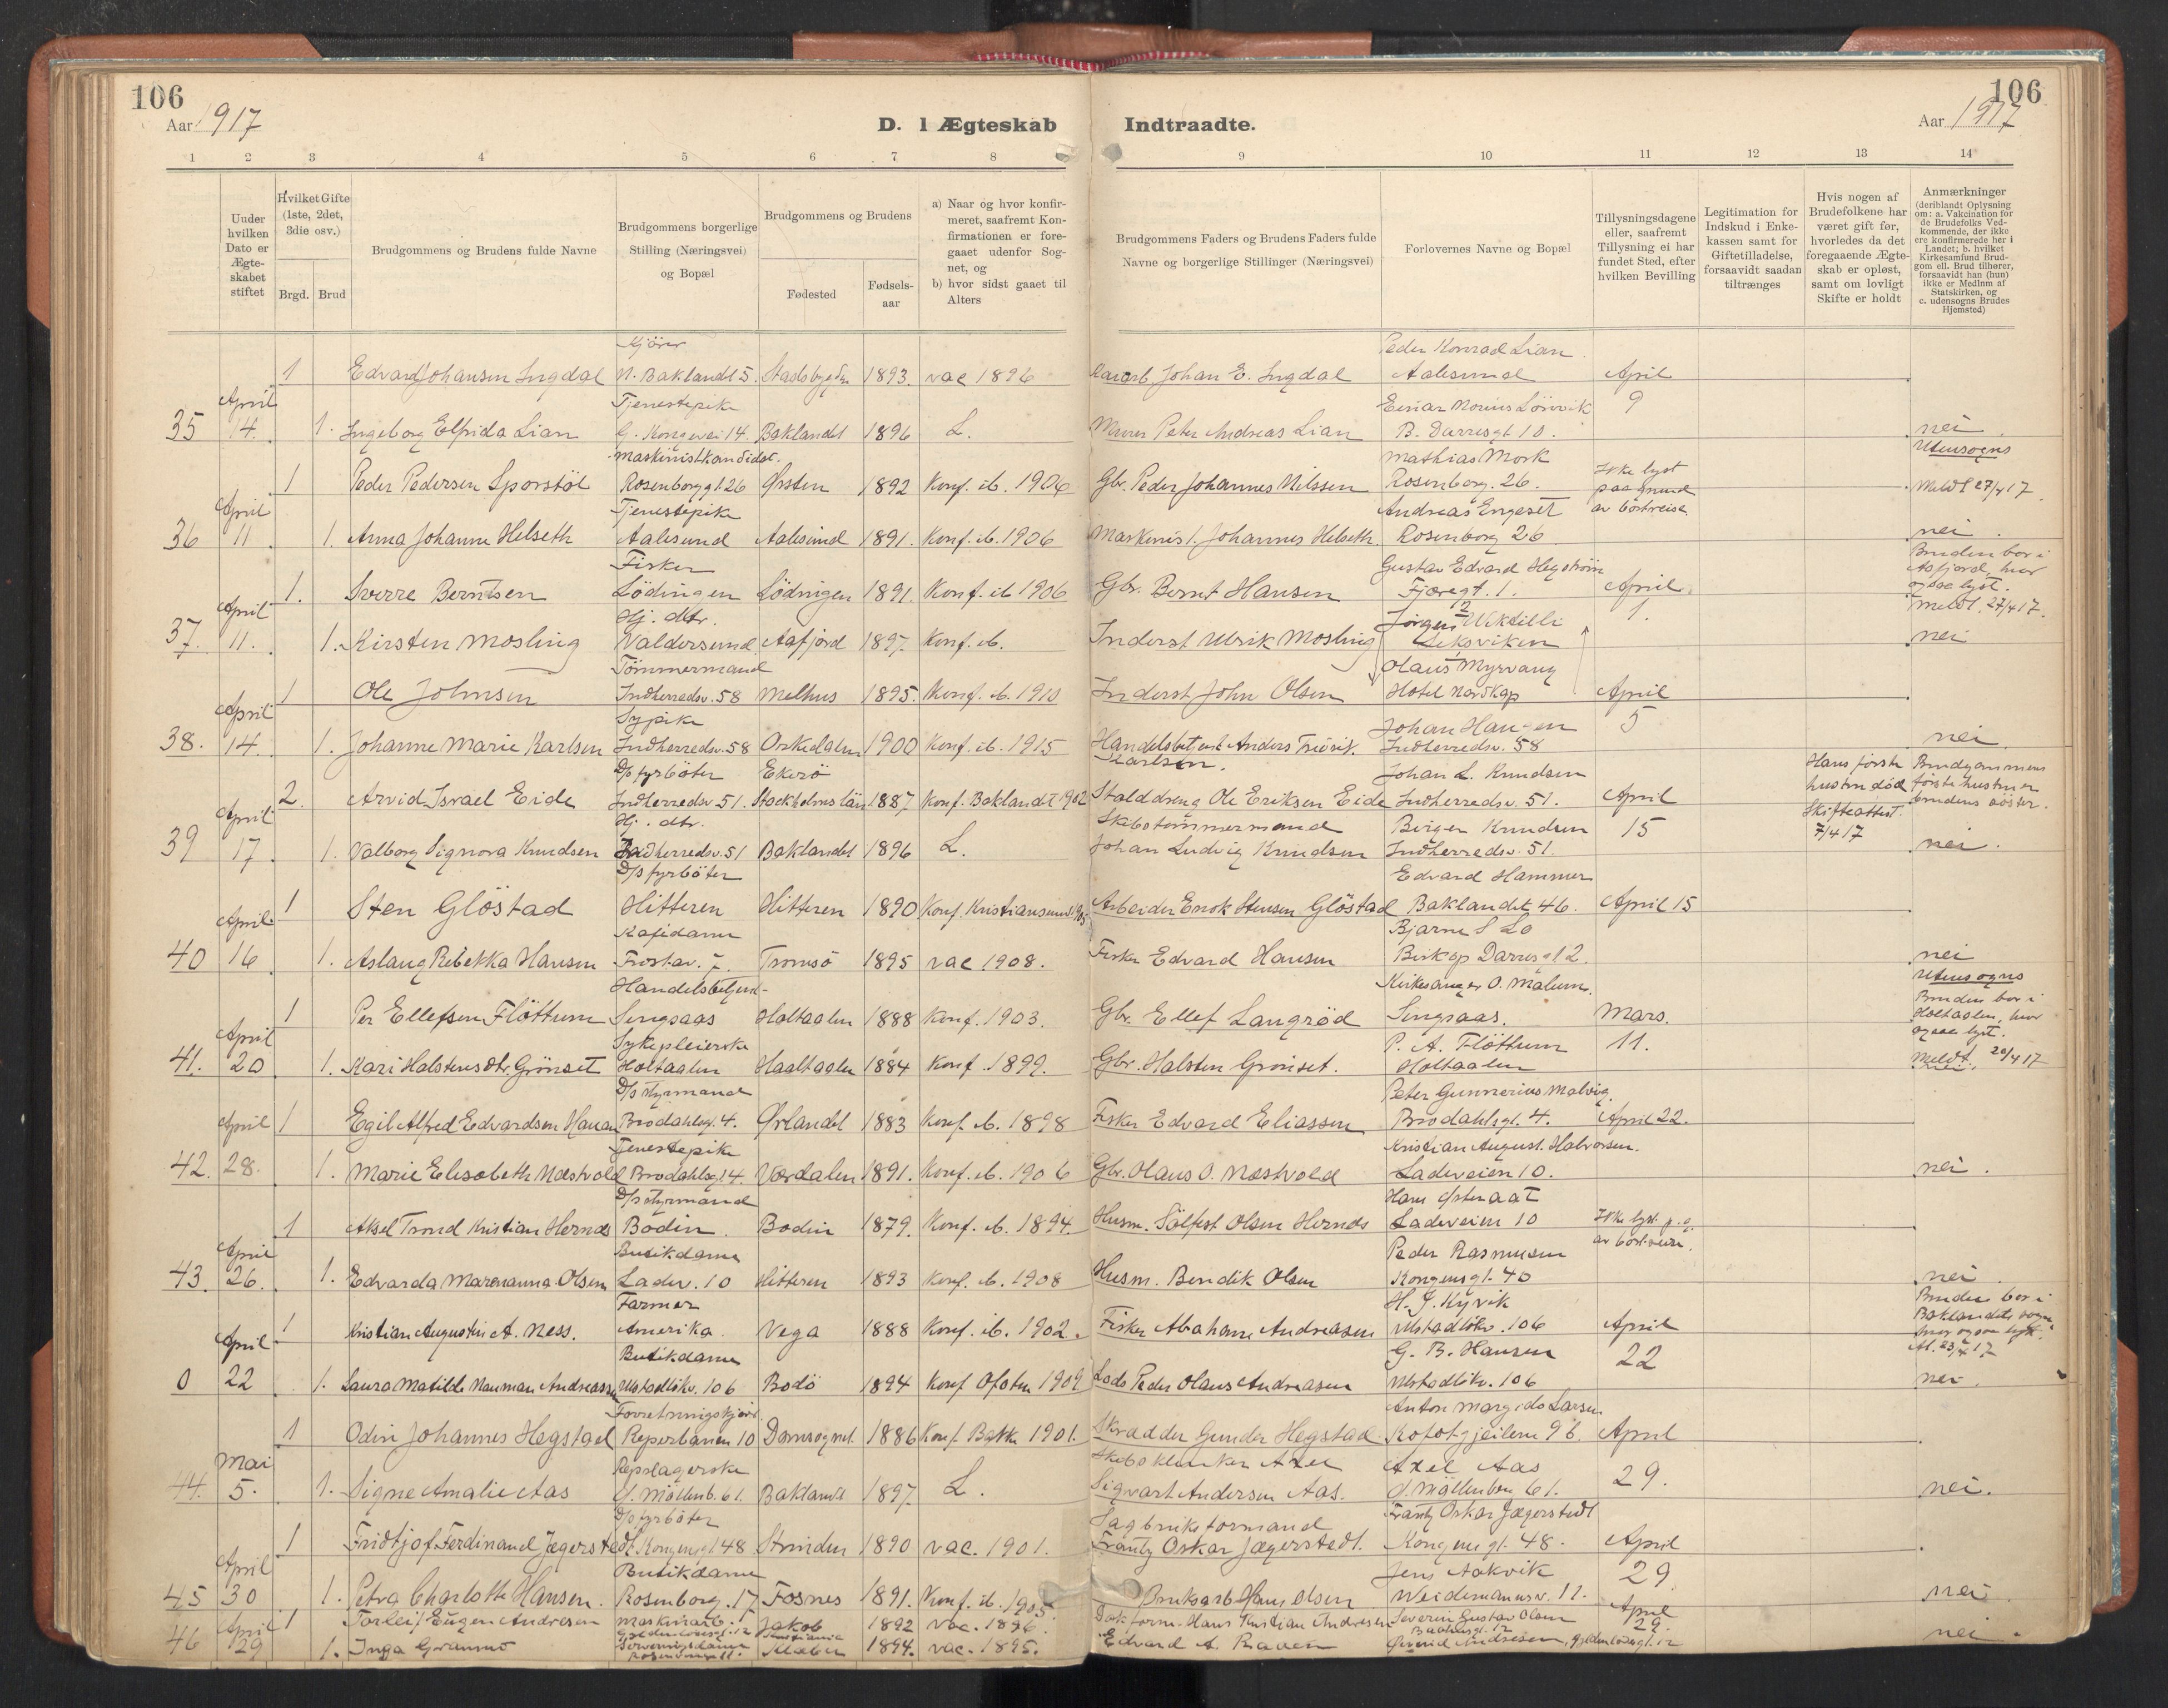 106
Aar 1917
D. I Ægteskab
Indtraadte.
106
Aar 1917
1 2 3 4 5 6 7 8 9 10 11 12 13 14
Uuder hvilken Dato er Ægte-skabet stiftet
Hvilket Gifte (1ste, 2det, 3die osv.)
Brgd. Brud
Brudgommens og Brudens fulde Navne
Brudgommens borgerlige Stilling (Næringsvei) og Bopæl
Brudgommens og Brudens
Fødested
Fødsels-aar
a) Naar og hvor konfir-meret, saafremt Kon-firmationen er fore-gaaet udenfor Sog-net, og
b) hvor sidst gaaet til Alters
Brudgommens Faders og Brudens Faders fulde Navne og borgerlige Stillinger (Næringsvei)
Forlovernes Navne og Bopæl
Tillysningsdagene eller, saafremt Tillysning ei har fundet Sted, efter hvilken Bevilling
Legitimation for Indskud i Enke-kassen samt for Giftetilladelse, forsaavidt saadan tiltrænges
Hvis nogen af Brudefolkene har været gift før, hvorledes da det foregaaende Ægte-skab er opløst, samt om lovligt Skifte er holdt
Anmærkninger (deriblandt Oplysning om: a. Vakcination for de Brudefolks Ved-kommende, der ikke ere konfirmerede her i Landet; b. hvilket Kirkesamfund Brud-gom ell. Brud tilhører, forsaavidt han (hun) ikke er Medlnm af Statskirken, og c. udensogns Brudes Hjemsted)
Kjörer Peder Konrad Lian
1 Edvard Johansen Ingdal N. Baklandt 5. Stadsbygden 1893. vac 1896 Johan E. Ingdal Aalesund April
April Tjenestepike Einar 9
35 14. 1. Ingeborg Elfrida Lian G. Kongevei 14. Baklandet 1896 L. Murer Peter Andreas Lian B. Darresgt 10. nei
Maskinistkandidat. Mathias Mork Utensogns
1 Peder Pedersen Sporstöl Rosenborggt. 26 Ørsten 1892 Konf. ib. 1906 Gbr. Peder Johannes Nilssen Rosenborg. 26. Ikke lyst paa grund av bortreise Meldt 27/4 17.
April Tjenestepike Andreas Engeset
36 11 1. Anna Johanne Helseth Aalesund Aalesund 1891. Konf. ib. 1906 Maskinist Johannes Helseth. Rosenborg 26 nei
Fisker Gustav Edvard Hegström Bruden bor i Aafjord, hvor ogsaa lyst. Meldt. 27/4 17.
1. Sverre Berntsen Lödingen Lödingen 1891. Konf. ib 1906 Gbr. Bernt Hansen Fjæregt. 1. April
April Hj. dtr. Jørgen 1.
37. 11. 1. Kirsten Mosling Valdersund. Aafjord 1897. Konf. ib. Inderst Ulrik Mosling Leksviken nei
Tömmermand Olaus Myrvang
1 Ole Johnsen Indherredsv. 58 Melhus 1895. Konf. ib. 1910 Inderst John Olsen Hotel Nordkap April
April Sypike Johan Hansen 5
38. 14. 1. Johanne Marie Karlsen Indherredsv. 58 Orkedalen 1900 Konf. ib. 1915 Handelsbetjent Anders Karlsen. Indherredsv. 58 nei
D/s fyrböter Ekerö Johan L. Knudsen Hans første hustru död Skifteattest. 7/4 17 Brudgommens første hustru er brudens söster.
2. Arvid Israel Eide Indherredsv 51. Stockholms län 1887 Konf. Baklandet 1902 Stalddreng Ole Eriksen Eide Indherredsv. 51. April
April Hj. dtr. Skibstömmermand Birger Knudsen 15
39 17 1. Valborg Signora Knudsen Indherredsv. 51 Baklandet 1896 L. Johan Ludvig Knudsen Indherredsv. 51. nei.
D/s fyrböter Edvard Hammer
1 Sten Glöstad Hitteren Hitteren 1890 Konf. Kristiansund 1905 Arbeider Enok Stensen Glöstad Baklandet 46. April 15
April Kafidame Bjarne S Lo
40 16 1. Aslaug Rebekka Hansen Frostav. 7. Tromsö 1895 vac 1908. Fisker Edvard Hansen Biskop Darresgt 2. nei
Handelsbetjent Kirkesanger O. Malum. Utensogns
1 Per Ellefsen Flöttum Singsaas Holtaalen 1888 Konf. 1903. Gbr. Ellef Langröd Singsaas. Mars. Bruden bor i Holtaalen, hvor ogsaa lyst. Meldt. 20/4 17
April Sykepleierske P. A. Flöttum 11.
41. 20 1. Kari Halstensdtr. Grönset Holtaalen Haaltaalen 1884 Konf. 1899. Gbr. Halsten Grönset. Holtaalen nei.
D/s styrmand Peter Gunnerius Malvig.
April 1 Egil Alfred Edvardsen Hanan Brodahlsg. 4. Ørlandet 1883 Konf. ib. 1898 Fisker Edvard Eliassen Brodahlsgt. 4. April 22.
Tjenestepike Kristian August Halvorsen.
42. 28. 1. Marie Elisabeth Næstvold Brodahlsgt 4. Værdalen 1891. Konf. ib. 1906 Gbr. Olaus O. Næstvold Ladeveien 10. nei.
D/s styrmand Hans Østeraat
1 Aksel Trond Kristian Hernes Bodin Bodin 1879. Konf. ib. 1894. Husm. Sölfest Olsen Hernes Ladeveien 10 Ikke lyst p.g. av bortreise.
April Butikdame Peder Rasmusen
43. 26. 1. Edvarda Marenanna Olsen Ladev. 10 Hitteren 1893 Konf. ib. 1908 Husm. Bendik Olsen Kongensgt. 40 nei
Farmer H. J. Kyvik Bruden bor i Baklandets sogn hvor ogsaa lyst. M. 23/4 17
1 Kristian Augustin A. Ness. Amerika. Vega 1888 Konf. ib. 1902. Fisker Abaham Andreasen Ulstadlökv. 106 April
April Butikdame G. B. Hansen 22
0 22 1. Laura Matilde Nauman Andreassen Ulstadlökv. 106 Bodö 1894 Konf Ofoten 1909 Lods Peder Olaus Andreasen Ulstadlökv. 106 nei.
Forretningskjörer. Anton Margido Larsen
1 Odin Johannes Hegstad Reperbanen 10 Domsognet 1886 Konf. Bakke 1901. Skrædder Gunder Hegstad. 96. April
Mai Repslagerske Axel Aas 29.
44. 5. 1. Signe Amalie Aas N. Möllenb. 61. Baklandet 1897. L. Sigvart Andersen Aas. N. Möllenberg 61. nei.
D/s fyrböter Sagbruksformand Frantz Oskar Jægerstedt
1 Fridtjof Ferdinand Jægerstedt. Kongensgt 48 Strinden 1890 vac. 1901. Frantz Oskar Jægerstedt. Kongensgt. 48. April
April Butikdame Jens Aakvik 29
45 30 1. Petra Charlotte Hansen. Rosenborg. 17 Fosnes 1891. Konf. ib. 1905. Bruksarb Hans Olsen Weidemannsv. 11. nei
April 1 Torleif Eugen Andresen Maskinarb. Gyldenlövesgt. 12 Jakob Kristiania 1892 vac. 1896. Hans Kristian Andresen Severin Gustav Olsen April 29.
46 29 1. Inga Rosenborg 11. Klæbu 1894. vac. 1895. Edvard A. Andresen, Gyldenlövesgt. 12 nei.